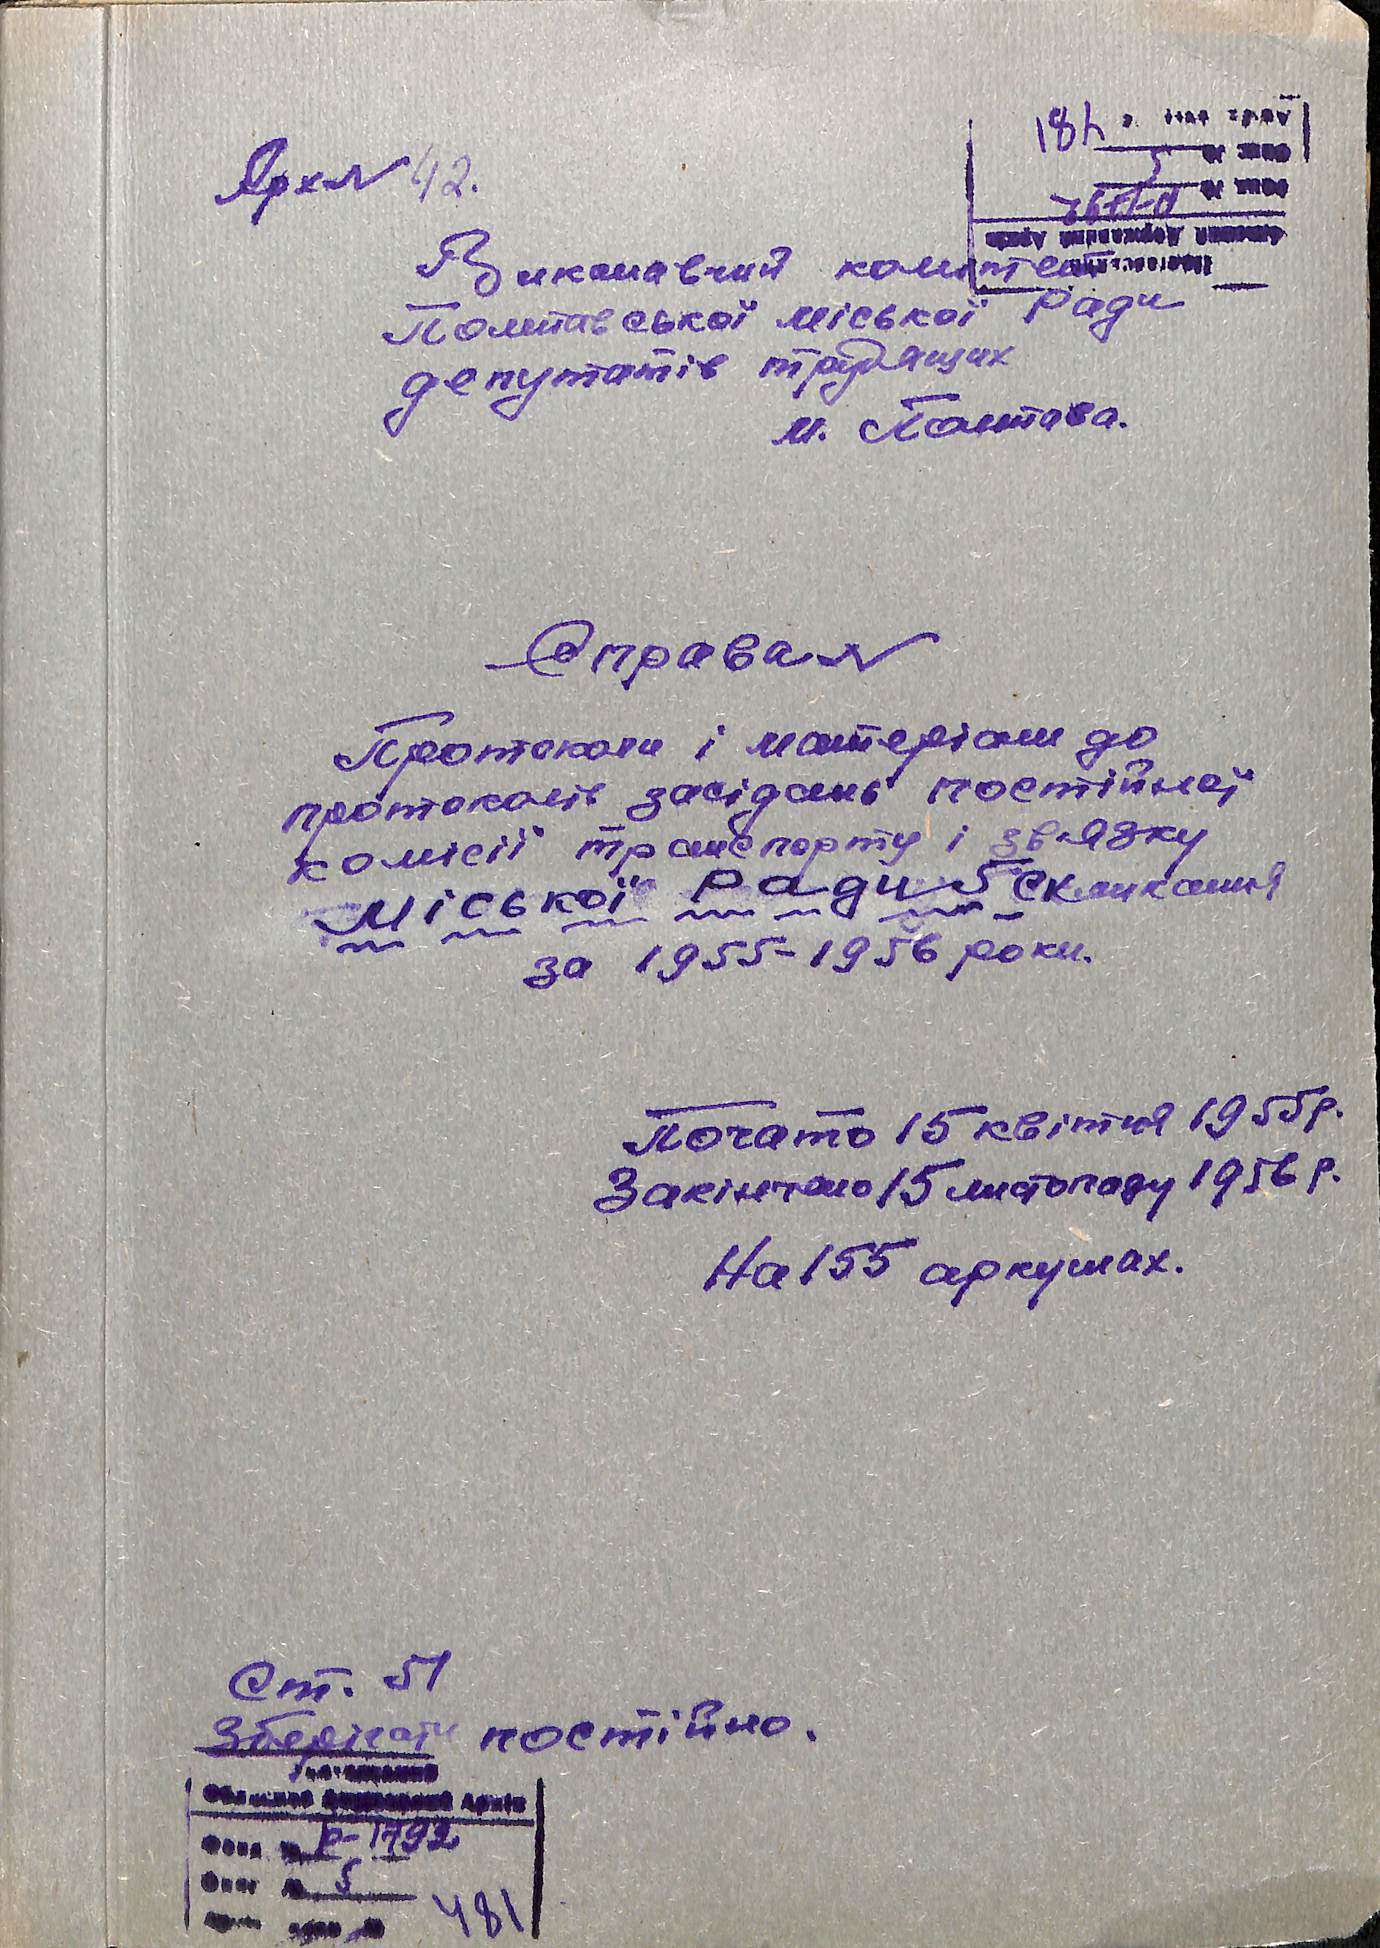 Арх № 42.
481
5
Р-1792
Виконавчий комітет
Полтавської міської Ради
депутатів трудящих
м. Полтава.
Справа №
Протоколи і матеріали до
протоколів засідань постійної
комісії транспорту і зв'язку
міської Ради 5 скликання
за 1955-1956 роки.
Почато 15 квітня 1955 р.
Закінчено 15 листопаду 1956 р.
На 155 аркушах.
Ст. 51
Зберігати постійно.
Архів
Фонд № Р-1792
Опис № 5
481